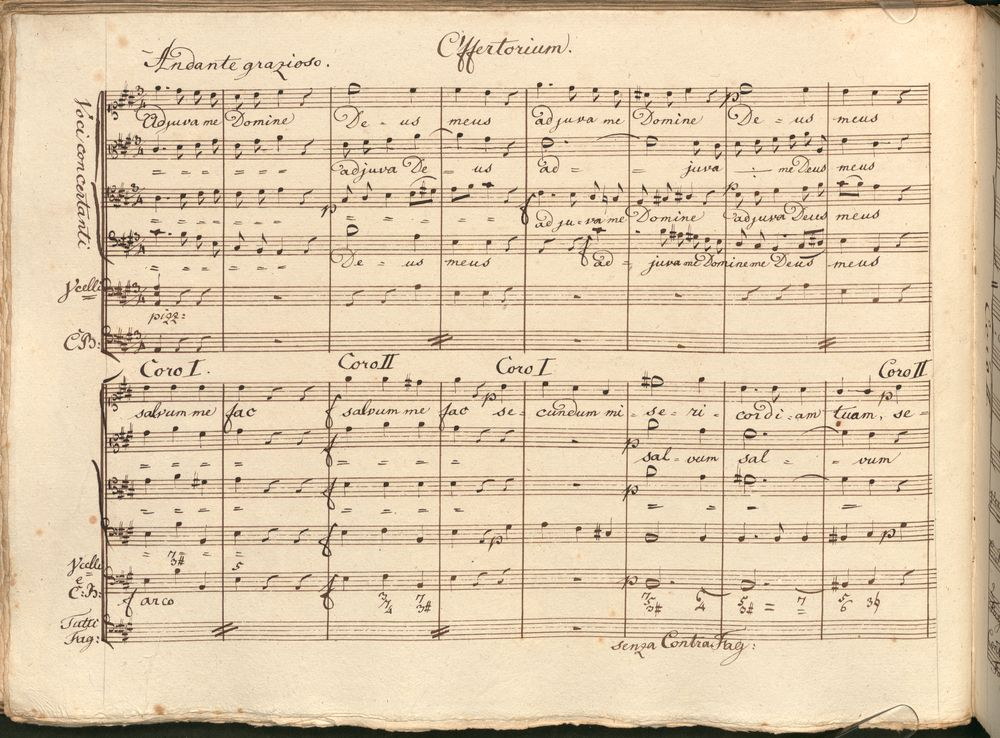 Offertorium.
Andante grazioso.
Voci concertanti
Adjuva me Domine De = us meus adjuva me Domine De = us meus
= = = = = adjuva De = us ad = = juva = me Deus meus
p
= = = = = adjuva me Domine adjuva Deus meus
= = = = = De = us meus ad = juva me Domine me Deus meus
Vcelli
pizz:
C.B:
Coro I. Coro II Coro I Coro II
salvum me fac f salvum me fac p se = cundum mi = se = ri = cordi = am tuam, p se =
= = = = f = = = = p salvum sal = = vum
f p
= 7 3# = = f p p
5
Vcelli
e
C:B:
f arco f 3 7 4 7 3# p 7 5 3# 6 4 5 3# = 7 5 6 3
Tutti
Fag:
senza Contra Fag: